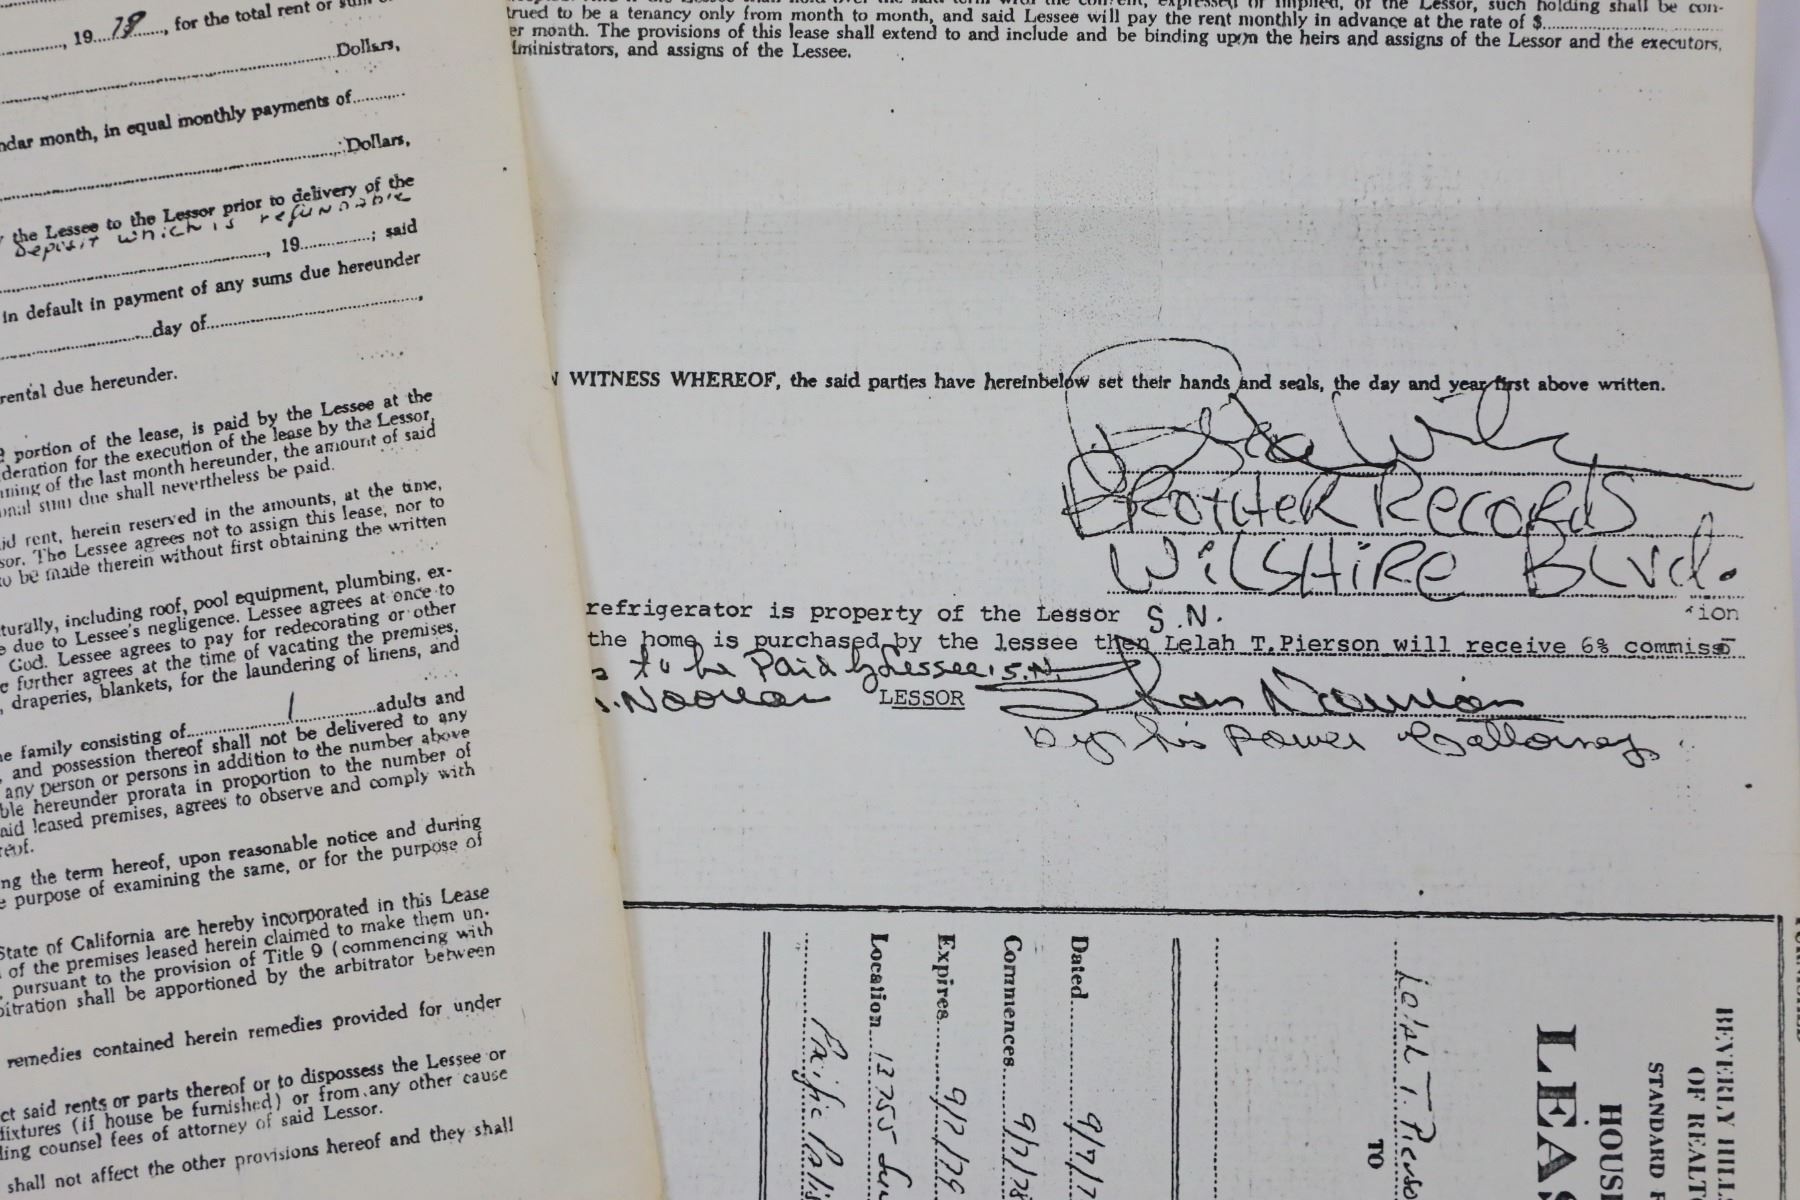 , 19 78 , for the total rent or sum of
Dollars,
ndar month, in equal monthly payments of
Dollars,
the Lessee to the Lessor prior to delivery of the
deposit which is refundable
, 19 ; said
in default in payment of any sums due hereunder
day of ,
rental due hereunder.
portion of the lease, is paid by the Lessee at the
deration for the execution of the lease by the Lessor,
ning of the last month hereunder, the amount of said
onal sum due shall nevertheless be paid.
id rent, herein reserved in the amounts, at the time,
sor. The Lessee agrees not to assign this lease, nor to
to be made therein without first obtaining the written
cturally, including roof, pool equipment, plumbing, ex-
e due to Lessee's negligence. Lessee agrees at once to
God. Lessee agrees to pay for redecorating or other
e further agrees at the time of vacating the premises,
, draperies, blankets, for the laundering of linens, and
he family consisting of 1 adults and
, and possession thereof shall not be delivered to any
any person or persons in addition to the number above
ble hereunder prorata in proportion to the number of
aid leased premises, agrees to observe and comply with
reof.
ng the term hereof, upon reasonable notice and during
e purpose of examining the same, or for the purpose of
State of California are hereby incorporated in this Lease
of the premises leased herein claimed to make them un-
, pursuant to the provision of Title 9 (commencing with
bitration shall be apportioned by the arbitrator between
remedies contained herein remedies provided for under
ct said rents or parts thereof or to dispossess the Lessee or
fixtures (if house be furnished) or from any other cause
ding counsel fees of attorney of said Lessor.
shall not affect the other provisions hereof and they shall
, expressed or implied, of the Lessor, such holding shall be con-
trued to be a tenancy only from month to month, and said Lessee will pay the rent monthly in advance at the rate of $
er month. The provisions of this lease shall extend to and include and be binding upon the heirs and assigns of the Lessor and the executors,
dministrators, and assigns of the Lessee.
N WITNESS WHEREOF, the said parties have hereinbelow set their hands and seals, the day and year first above written.
BROTHER RECORDS
WILSHIRE BLVD.
refrigerator is property of the Lessor S.N.
ion
the home is purchased by the lessee then Lelah T.Pierson will receive 6% commiss
to be Paid by Lessee S.N.
S. Noonan LESSOR Shan Noonan
by his power of attorney
BEVERLY HILL
OF REALT
STANDARD F
HOUS
LEAS
Lelah T. Pierso
TO
Dated 9/7/7
Commences 9/7/78
Expires 9/7/79
Location 13755 Sun
Pacific Palis